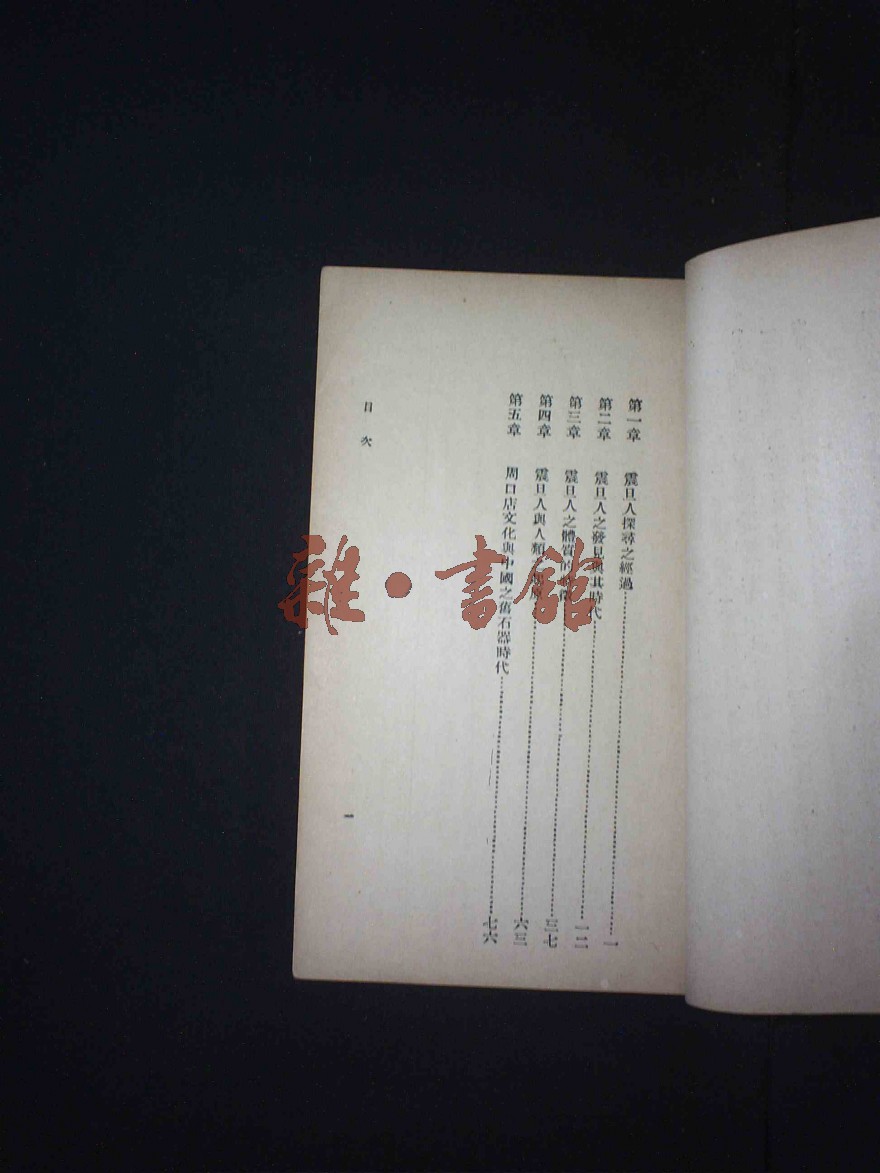 第一章 震旦人探尋之經過……一
第二章 震旦人之發見與其時代……一二
第三章 震旦人之體質的……三七
第四章 震旦人與人類……六三
第五章 周口店文化與中國之舊石器時代……七六
目次
一
雜·書館